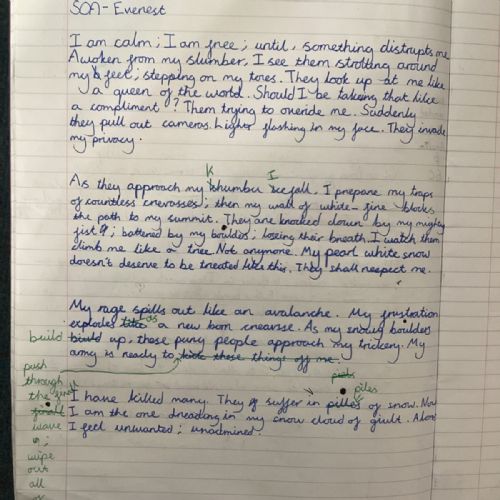 SOA - Everest
I am calm; I am free; until, something distrupts me.
Awoken from my slumber, I see them strolling around
my feet; stepping on my tores. They look up at me like
a queen of the world. Should I be takeing that like
a compliment? Them trying to overide me. Suddenly
they pull out cameras. Lights flashing in my face. They invade
my privacy.
K I
As they approach my khumbu icefall, I prepare my traps
of countless crevasses; then my wall of white-fire blocks
the path to my summit. They are knocked down by my mighty
fist; battered by my boulders; loseing their breath. I watch them
climb me like a tree. Not anymore. My pearl white snow
doesn't deserve to be treated like this. They shall respect me.
My rage spills out like an avalanche. My frustration
explodes like as a new born crevasse. As my snowy boulders
build biuld up, these puny people approach my trickery. My
army is ready to these things off me.
push
through
the
wave
;
wipe
out
all
piles
I have killed many. They suffer in pilles of snow. Now
I am the one dreading in my snow cloud of giult. Alone
I feel unwanted; unadmired.